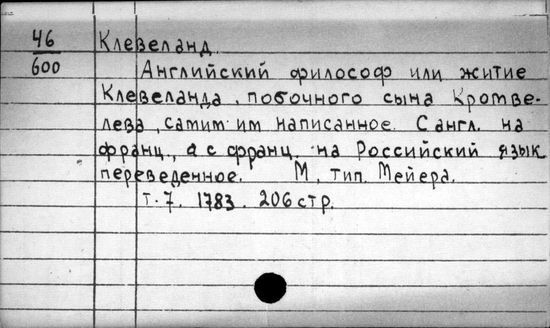 46
600
Клевеланд.
Английский философ или житие
Клевеланда, побочного сына Кромве-
лева, самим им написанное. С англ. на
франц., а с франц. на Российский язык
переведенное. М, тип. Мейера.
т. 7. 1783. 206 стр.